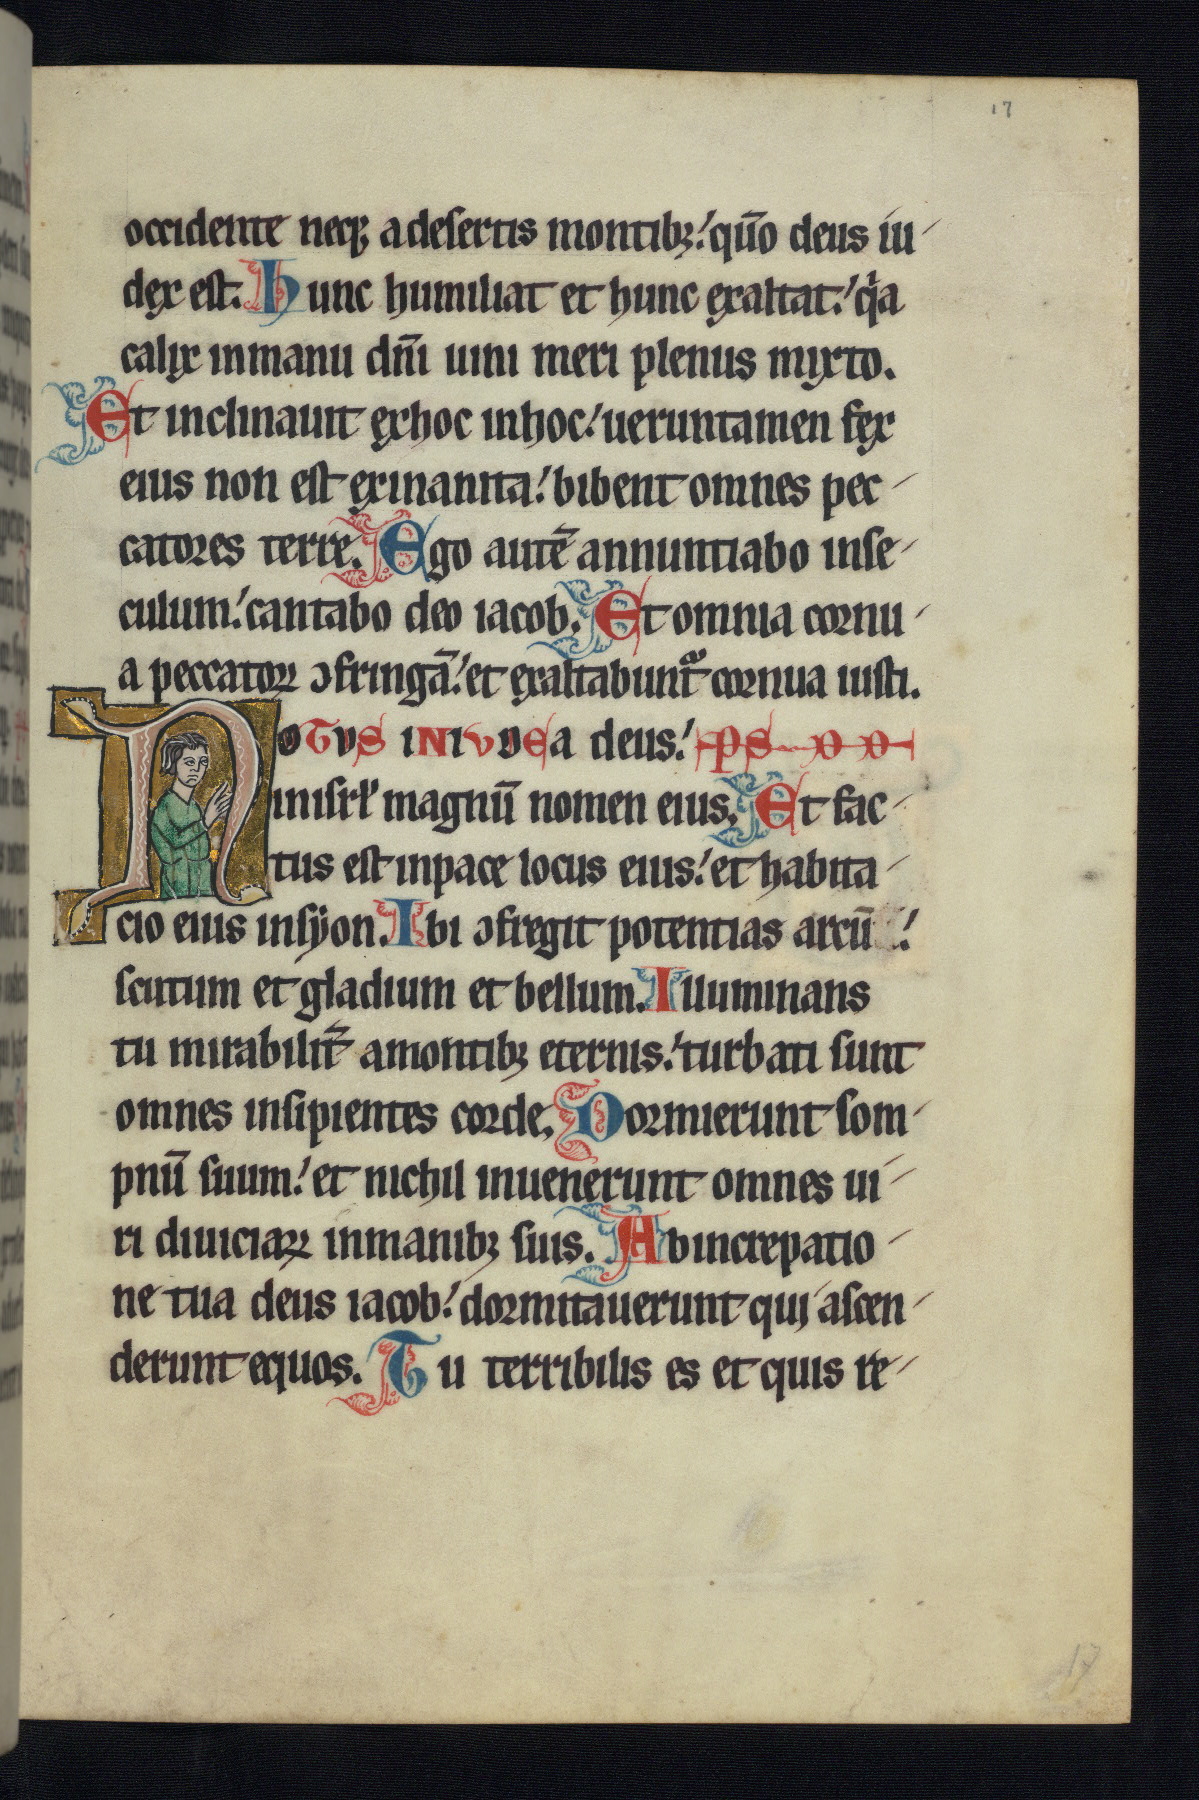 17
occidente neqꝫ a desertis montibꝫ: qm̄o deus iu
dex est. Hunc humiliat et hunc exaltat: qͥa
calix in manu dn̄i uini meri plenus mixto.
Et inclinauit ex hoc in hoc: ueruntamen fex
eius non est exinanita: bibent omnes pec
catores terre. Ego autē annuntiabo in se
culum: cantabo deo iacob. Et omnia cornu
a peccatoꝝ ↄfringā: et exaltabunt᷑ cornua iusti.
NOTVS IN IVDEa deus: PS
in isrl̓ magnū nomen eius. Et fac
tus est in pace locus eius: et habita
cio eius in syon. Ibi ↄfregit potentias arcū:
scutum et gladium et bellum. Illuminans
tu mirabilit᷑ a montibꝫ eternis: turbati sunt
omnes insipientes corde. Dormierunt som
pnū suum: et nichil inuenerunt omnes ui
ri diuiciaꝝ in manibꝫ suis. Ab increpatio
ne tua deus iacob: dormitauerunt qui ascen
derunt equos. Tu terribilis es et quis re
17